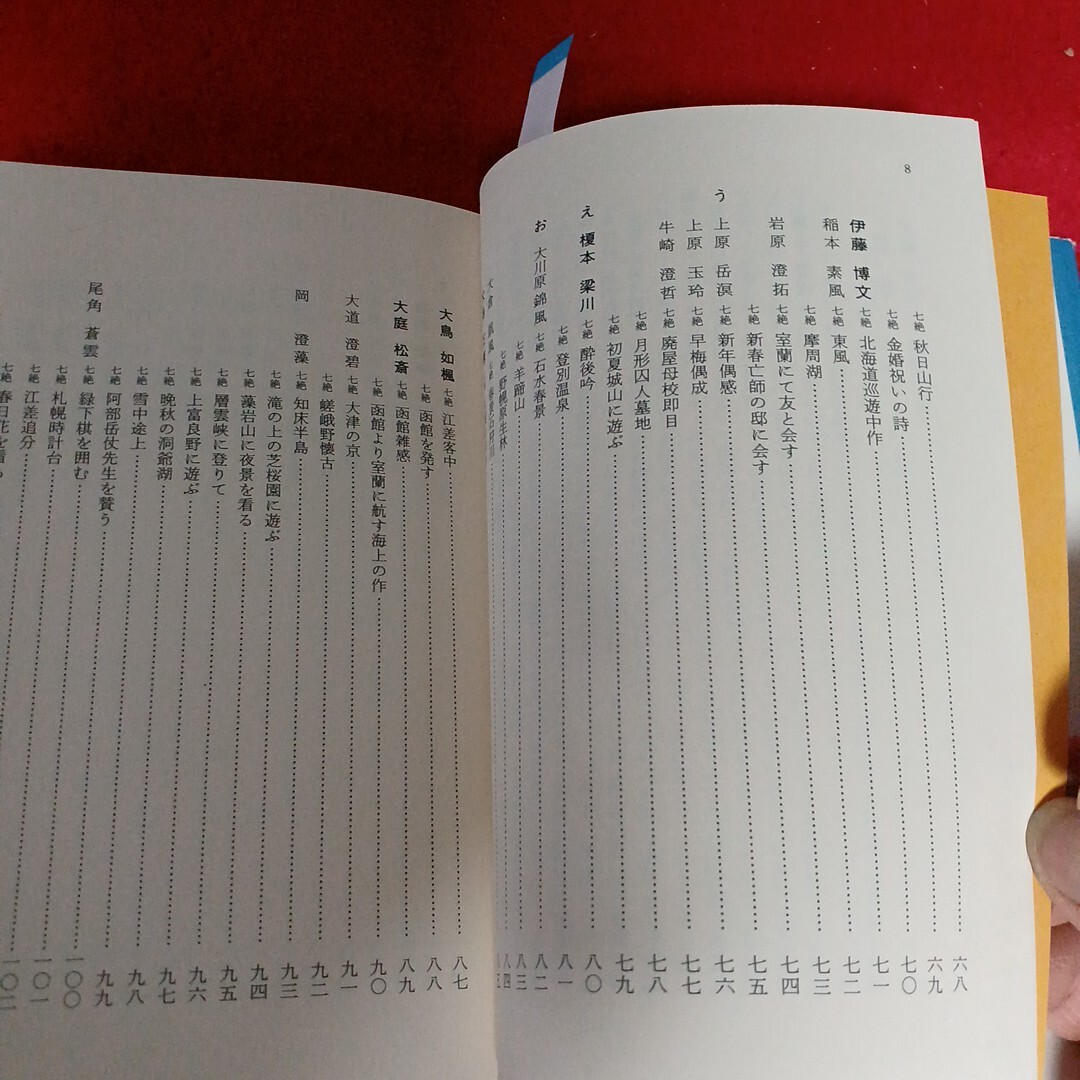 8
七絶 秋日山行 六八
七絶 金婚祝いの詩 六九
伊藤 博文 七絶 北海道巡遊中作 七〇
稲本 素風 七絶 東風 七一
七絶 摩周湖 七二
岩原 澄拓 七絶 室蘭にて友と会す 七三
七絶 新春亡師の邸に会す 七四
う 上原 岳溟 七絶 新年偶感 七五
上原 玉玲 七絶 早梅偶成 七六
牛崎 澄哲 七絶 廃屋母校即目 七七
七絶 月形囚人墓地 七八
七絶 初夏城山に遊ぶ 七九
え 榎本 梁川 七絶 酔後吟 八〇
七絶 登別温泉 八一
お 大川原 錦風 七絶 石水春景 八二
七絶 羊蹄山 八三
七絶 野幌原生林 八四
大鳥 如楓 七絶 江差客中 八七
七絶 函館を発す 八八
大庭 松斎 七絶 函館雑感 八九
七絶 函館より室蘭に航す海上の作 九〇
大道 澄碧 七絶 大津の京 九一
七絶 嵯峨野懐古 九二
岡 澄藻 七絶 知床半島 九三
七絶 滝の上の芝桜園に遊ぶ 九四
七絶 藻岩山に夜景を看る 九五
七絶 層雲峡に登りて 九六
七絶 上富良野に遊ぶ 九七
七絶 晩秋の洞爺湖 九八
七絶 雪中途上 九九
尾角 蒼雲 七絶 阿部岳仗先生を賛う 一〇〇
七絶 緑下棋を囲む 一〇一
七絶 札幌時計台 一〇二
七絶 江差追分
七絶 春日花を看る